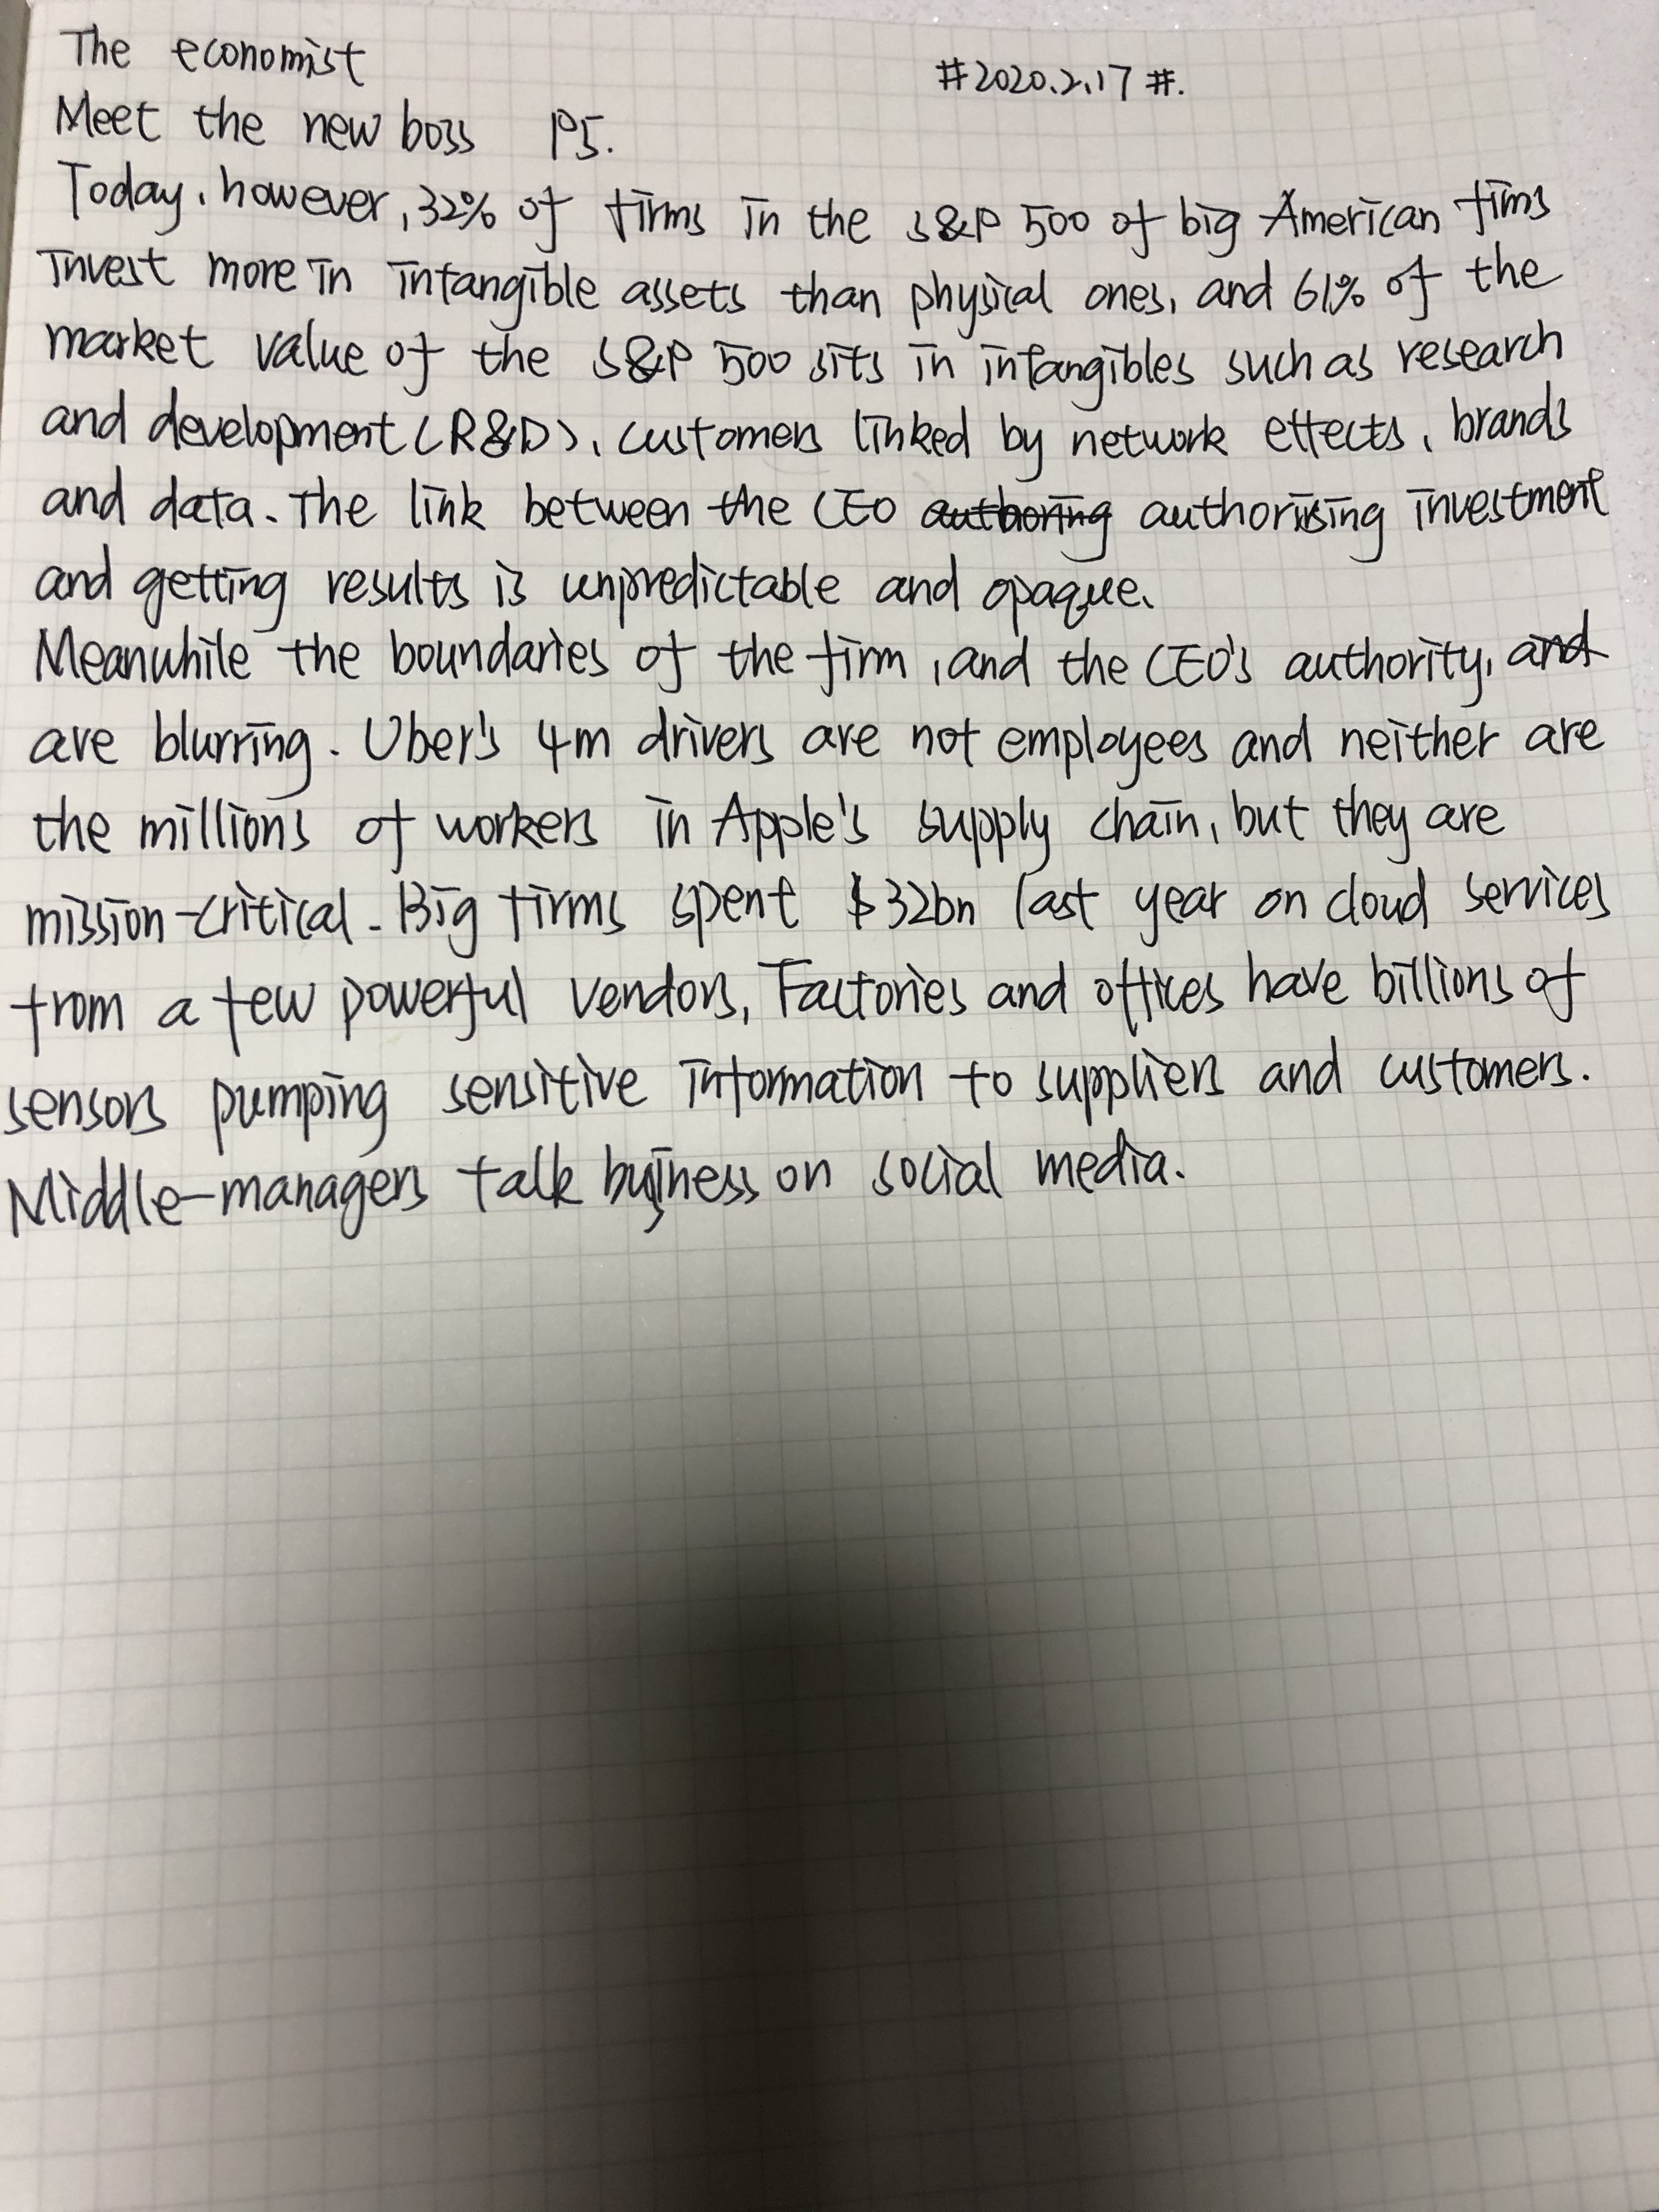 The economist
#2020.2.17#.
Meet the new boss P5.
Today, however, 32% of firms in the S&P 500 of big American fims
invest more in intangible assets than physical ones, and 61% of the
market value of the S&P 500 sits in intangibles such as research
and development (R&D), customers linked by network effects, brands
and data. The link between the CEO authoring authorising investment
and getting results is unpredictable and opaque.
Meanwhile the boundaries of the firm, and the CEO's authority, and
are blurring. Uber's 4m drivers are not employees and neither are
the millions of workers in Apple's supply chain, but they are
mission-critical. Big firms spent $32bn last year on cloud services
from a few powerful vendors, Factories and offices have billions of
sensors pumping sensitive information to suppliers and customers.
Middle-managers talk business on social media.